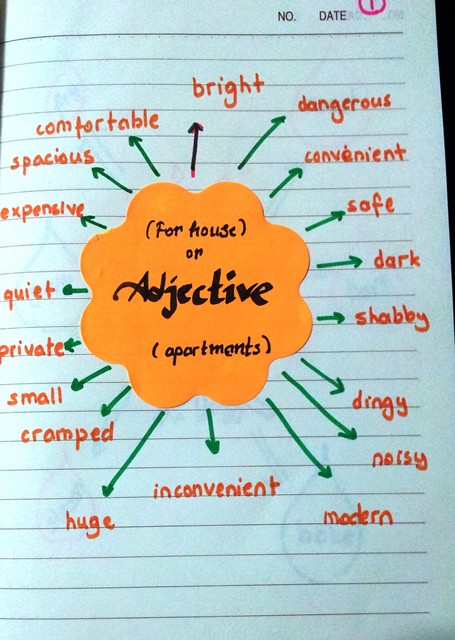 NO. DATE 1
bright
dangerous
comfortable
convenient
spacious
safe
expensive
(For house)
or
Adjective
(apartments)
dark
quiet
shabby
private
small
dingy
cramped
noisy
inconvenient
modern
huge